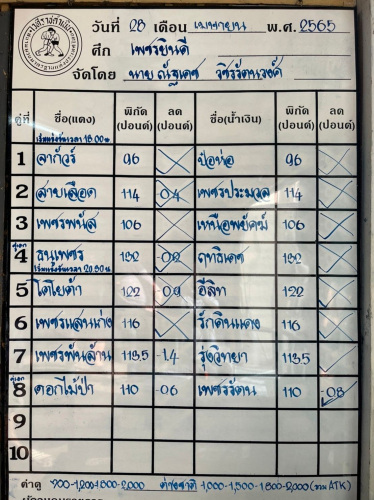 วันที่ 28 เดือน เมษายน พ.ศ. 2565
ศึก เพชรยินดี
จัดโดย นาย ณัฐเดช วชิรรัตนวงศ์
คู่ที่ ชื่อ(แดง) พิกัด (ปอนด์) ลด (ปอนด์) ชื่อ(น้ำเงิน) พิกัด (ปอนด์) ลด (ปอนด์)
เริ่มแข่งขันเวลา 18.00 น
1 ลาภัวร์ 96 ป๋อง่อ 96
2 สายเลือด 114 04 เพชรประมวล 114
3 เพชรพนัส 106 เหนือพยัคฆ์ 106
คู่เอก 4 ธนูเพชร 132 -02 ฤทธิเดช 132
เริ่มแข่งขันเวลา 20.30 น
5 โตโยต้า 122 09 อีลิท 122
6 เพชรแสนเก่ง 116 รักดินแดง 116
7 เพชรพันล้าน 113.5 -1.4 รุ่งวิทยา 113.5
คู่เอก 8 ดอกไม้ป่า 110 -06 เพชรรัตน 110 -08
9
10
ค่าดู 900-1,200-1,500-2,000 ต่างชาติ 1,000-1,500-1,800-2,000 (รวม ATK)